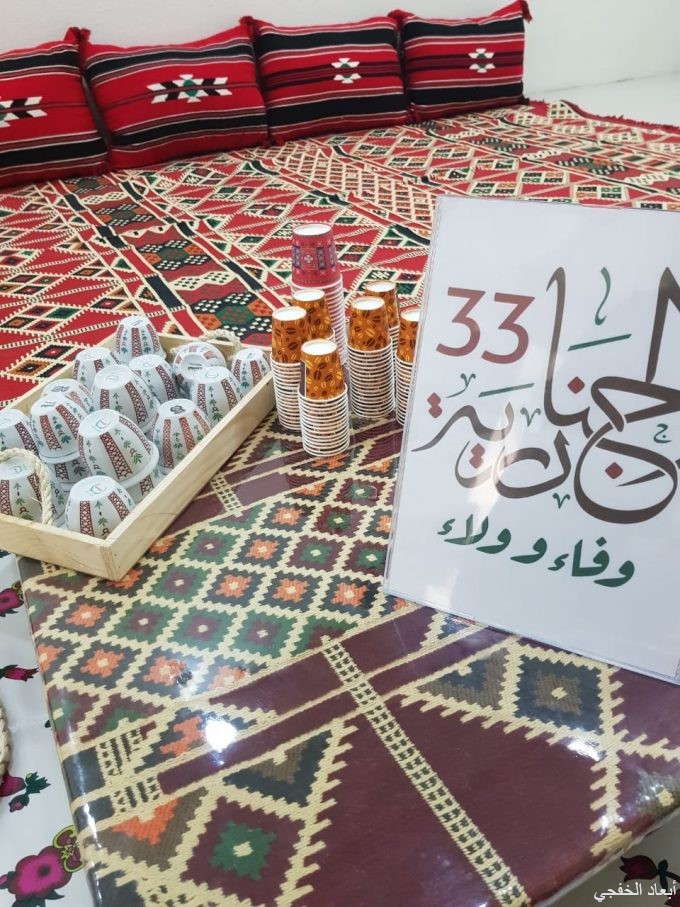 33
الجنادرية
وفاء و ولاء
أبعاد الخفجي